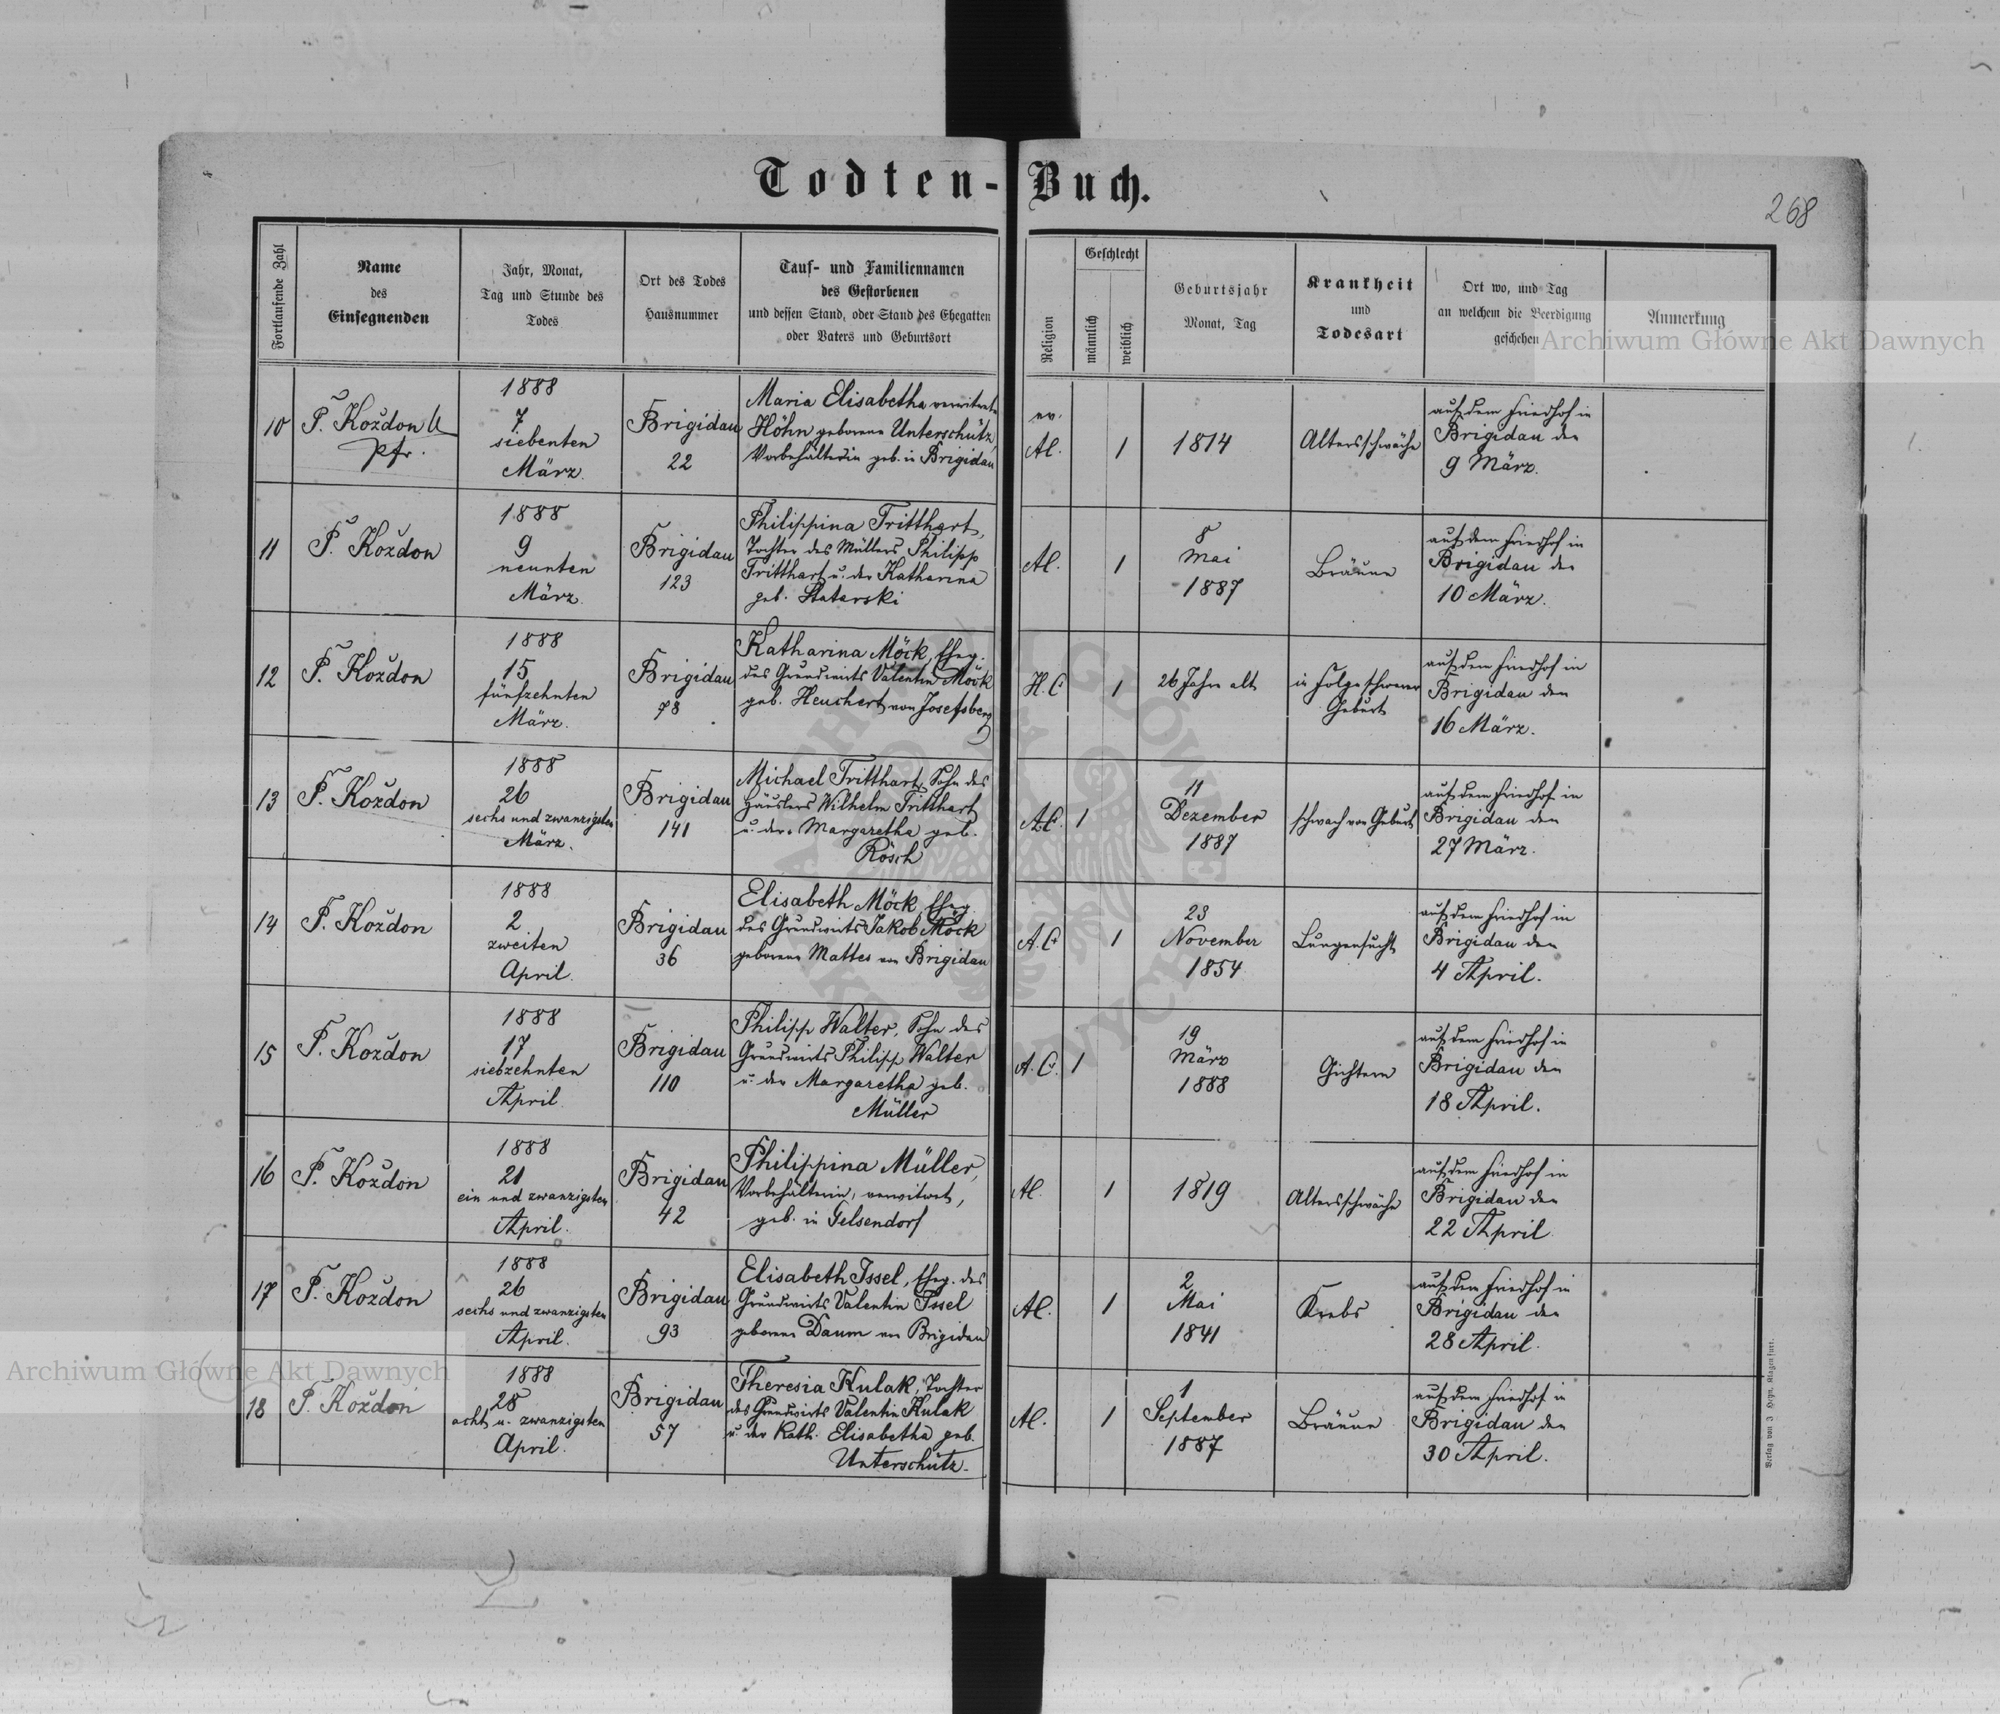 Todten-Buch.
268
Fortlaufende Zahl
Name
des
Einsegnenden
Jahr, Monat,
Tag und Stunde des
Todes
Ort des Todes
Hausnummer
Tauf- und Familiennamen
des Gestorbenen
und dessen Stand, oder Stand des Ehegatten
oder Vaters und Geburtsort
Religion
Geschlecht
männlich
weiblich
Geburtsjahr
Monat, Tag
Krankheit
und
Todesart
Ort wo, und Tag
an welchem die Beerdigung
geschehen
Anmerkung
Archiwum Główne Akt Dawnych
10
P. Kozdon
Pfr.
1888
7
siebenten
März.
Brigidau
22
Maria Elisabetha verwitwete
Höhn geborene Unterschütz,
Vorbehälterin geb. in Brigidau
ev.
AC.
1
1814
Altersschwäche
auf dem Friedhof in
Brigidau den
9 März.
11
P. Kozdon
1888
9
neunten
März.
Brigidau
123
Philippina Tritthart,
Tochter des Müllers Philipp
Tritthart u. der Katharina
geb.
AC.
1
8
Mai
1887
Bräune
auf dem Friedhof in
Brigidau den
10 März.
12
P. Kozdon
1888
15
fünfzehnten
März.
Brigidau
78
Katharina Möck, Eheg.
des Grundwirts Valentin Möck
geb. Heuchert von Josefsberg
H.C
1
26 Jahre alt
in Folge schwerer
Geburt
auf dem Friedhof in
Brigidau den
16 März.
13
P. Kozdon
1888
26
sechs und zwanzigsten
März.
Brigidau
141
Michael Tritthart, Sohn des
Häuslers Wilhelm Tritthart
u. der Margaretha geb.
Rösch
A.C.
1
11
Dezember
1887
schwach von Geburt
auf dem Friedhof in
Brigidau den
27 März.
14
P. Kozdon
1888
2
zweiten
April.
Brigidau
36
Elisabeth Möck, Eheg.
des Grundwirts Jakob Möck
geborene Mattes von Brigidau
A.C
1
23
November
1854
Lungensucht
auf dem Friedhof in
Brigidau den
4 April.
15
P. Kozdon
1888
17
siebzehnten
April.
Brigidau
110
Philipp Walter, Sohn des
Grundwirts Philipp Walter
u. der Margaretha geb.
Müller
A.C.
1
19
März
1888
Gichtern
auf dem Friedhof in
Brigidau den
18 April.
16
P. Kozdon
1888
21
ein und zwanzigsten
April.
Brigidau
42
Philippina Müller,
Vorbehälterin, verwitwet,
geb. in Gelsendorf
AC.
1
1819
Altersschwäche
auf dem Friedhof in
Brigidau den
22 April
17
P. Kozdon
1888
26
sechs und zwanzigsten
April.
Brigidau
93
Elisabeth Issel, Eheg. des
Grundwirts Valentin Issel
geborene Daum von Brigidau
AC.
1
2
Mai
1841
Krebs
auf dem Friedhof in
Brigidau den
28 April.
18
P. Kozdon
1888
28
acht u. zwanzigsten
April.
Brigidau
57
Theresia Kulak, Tochter
des Grundwirts Valentin Kulak
u. der Kath. Elisabetha geb.
Unterschütz.
AC.
1
1
September
1887
Bräune
auf dem Friedhof in
Brigidau den
30 April.
Archiwum Główne Akt Dawnych